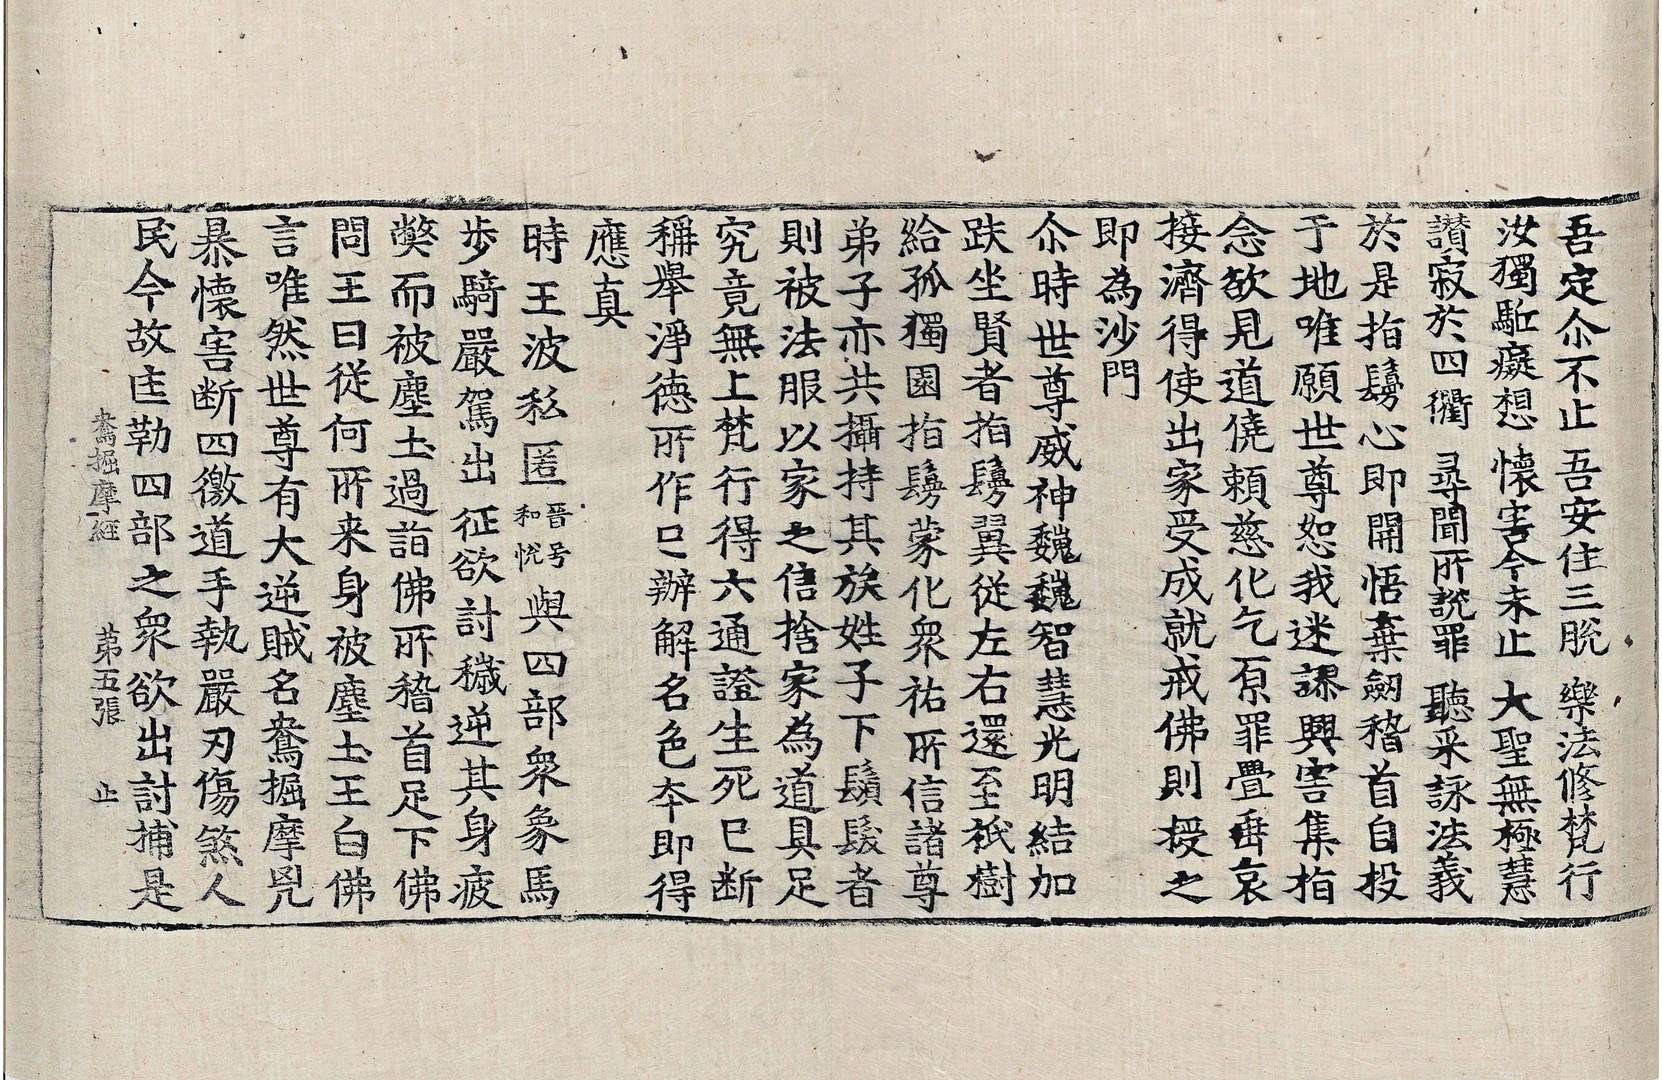 吾定尒不止 吾安住三脫 樂法修梵行
汝獨駈癡想 懷害今未止 大聖無極慧
讚寂於四衢 尋聞所說罪 聽采詠法義
於是指鬘心即開悟棄劒稽首自投
于地唯願世尊恕我迷謬興害集指
念欲見道僥賴慈化乞原罪舋垂哀
接濟得使出家受成就戒佛則授之
即為沙門
尒時世尊威神巍巍智慧光明結加
趺坐賢者指鬘翼從左右還至祇樹
給孤獨園指鬘蒙化眾祐所信諸尊
弟子亦共攝持其族姓子下鬚髮者
則被法服以家之信捨家為道具足
究竟無上梵行得六通證生死已斷
稱舉淨德所作已辦解名色本即得
應真
時王波私匿晉号和悅與四部眾象馬
步騎嚴駕出征欲討穢逆其身疲
弊而被塵土過詣佛所稽首足下佛
問王曰從何所来身被塵土王白佛
言唯然世尊有大逆賊名鴦掘摩兇
暴懷害断四徼道手執嚴刃傷煞人
民今故𨑯勒四部之眾欲出討捕是
鴦掘摩經 第五張 止